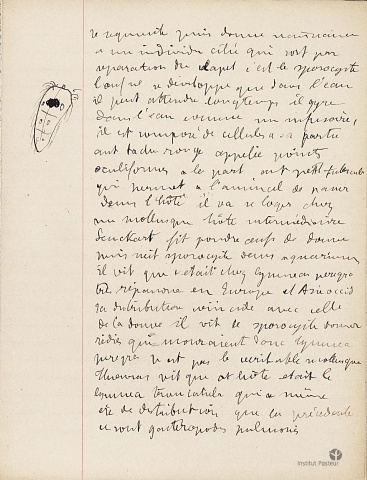 se segmente puis donne naissance
a un individu cilié qui sort par
separation du clapet c'est le sporocyste
l'oeuf ne se developpe que dans l'eau
il peut attendre longtemps il gyre
dans l'eau comme un infusoire,
il est composé de cellules a sa partie
ant tache rouge appelée points
oculiformes a la part ant petit tubercule
qui permet a l'animal de passer
dans l'hôte il va se loger chez
un mollusque hôte intermédiaire
Leuckart fit pondre oeufs de douve
puis mit sporocyste dans aquarium
il vit que c'etait chez Lymnea peregra
très répandue en Europe et Asie occid
sa distribution coincide avec celle
de la douve il vit le sporocyste donner
rédies qui mouraient donc Lymnea
peregra n'est pas le veritable mollusque
Thomas vit que cet hôte etait le
Lymnea truncatula qui a même
de distribution que la précédente
ce sont gasteropodes pulmonés
Institut Pasteur